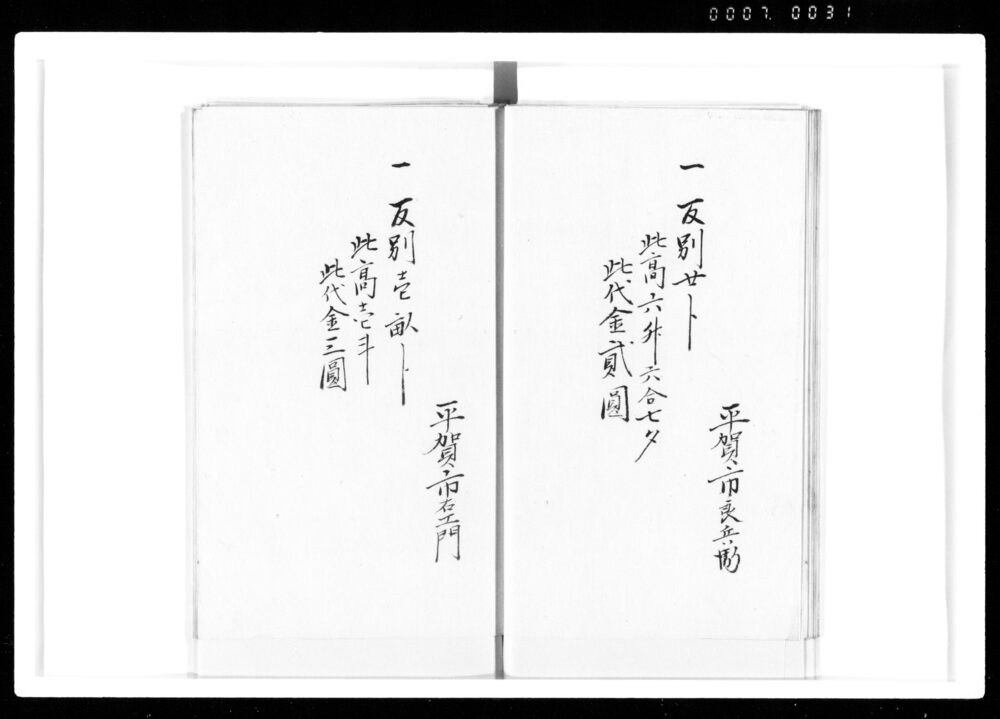 0007. 0031
平賀市良兵衛
一 反別廿卜
此高六升六合七夕
此代金貳圓
平賀市右エ門
一 反別壱畝卜
此高壱斗
此代金三圓